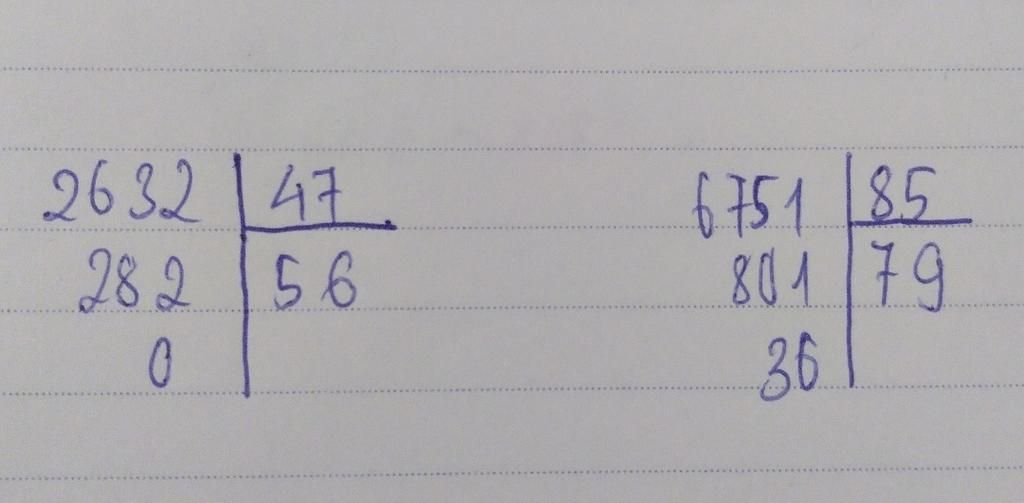 2632 47
282 56
0
6751 85
801 79
36